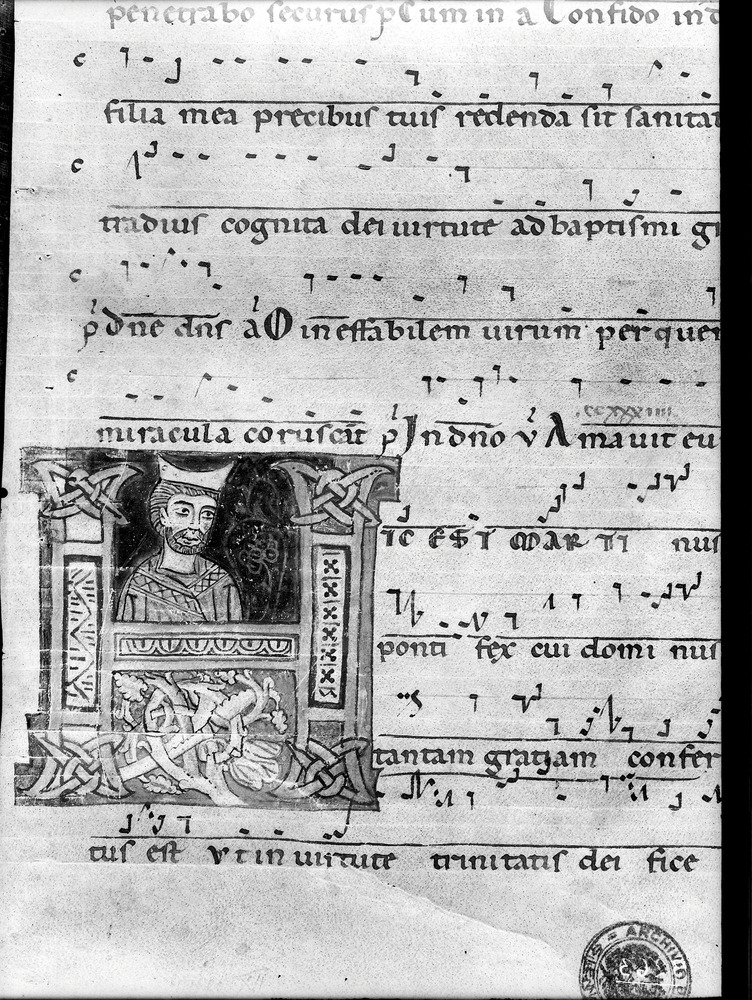 penetrabo securus p Cum in a Confido in d
c
filia mea precibus tuis redenda sit sanitas
c
tradius cognita dei uirtute ad baptismi gr
c
p dne dns a O ineffabilem uirum per quem
c
miracula coruscat p In dno v Amauit eu
ccxxxiiii
H IC EST MARTI nus
ponti fex cui domi nus
tantam gratiam confer
tus est vt in uirtute trinitatis dei fice
ARCHIVIO D